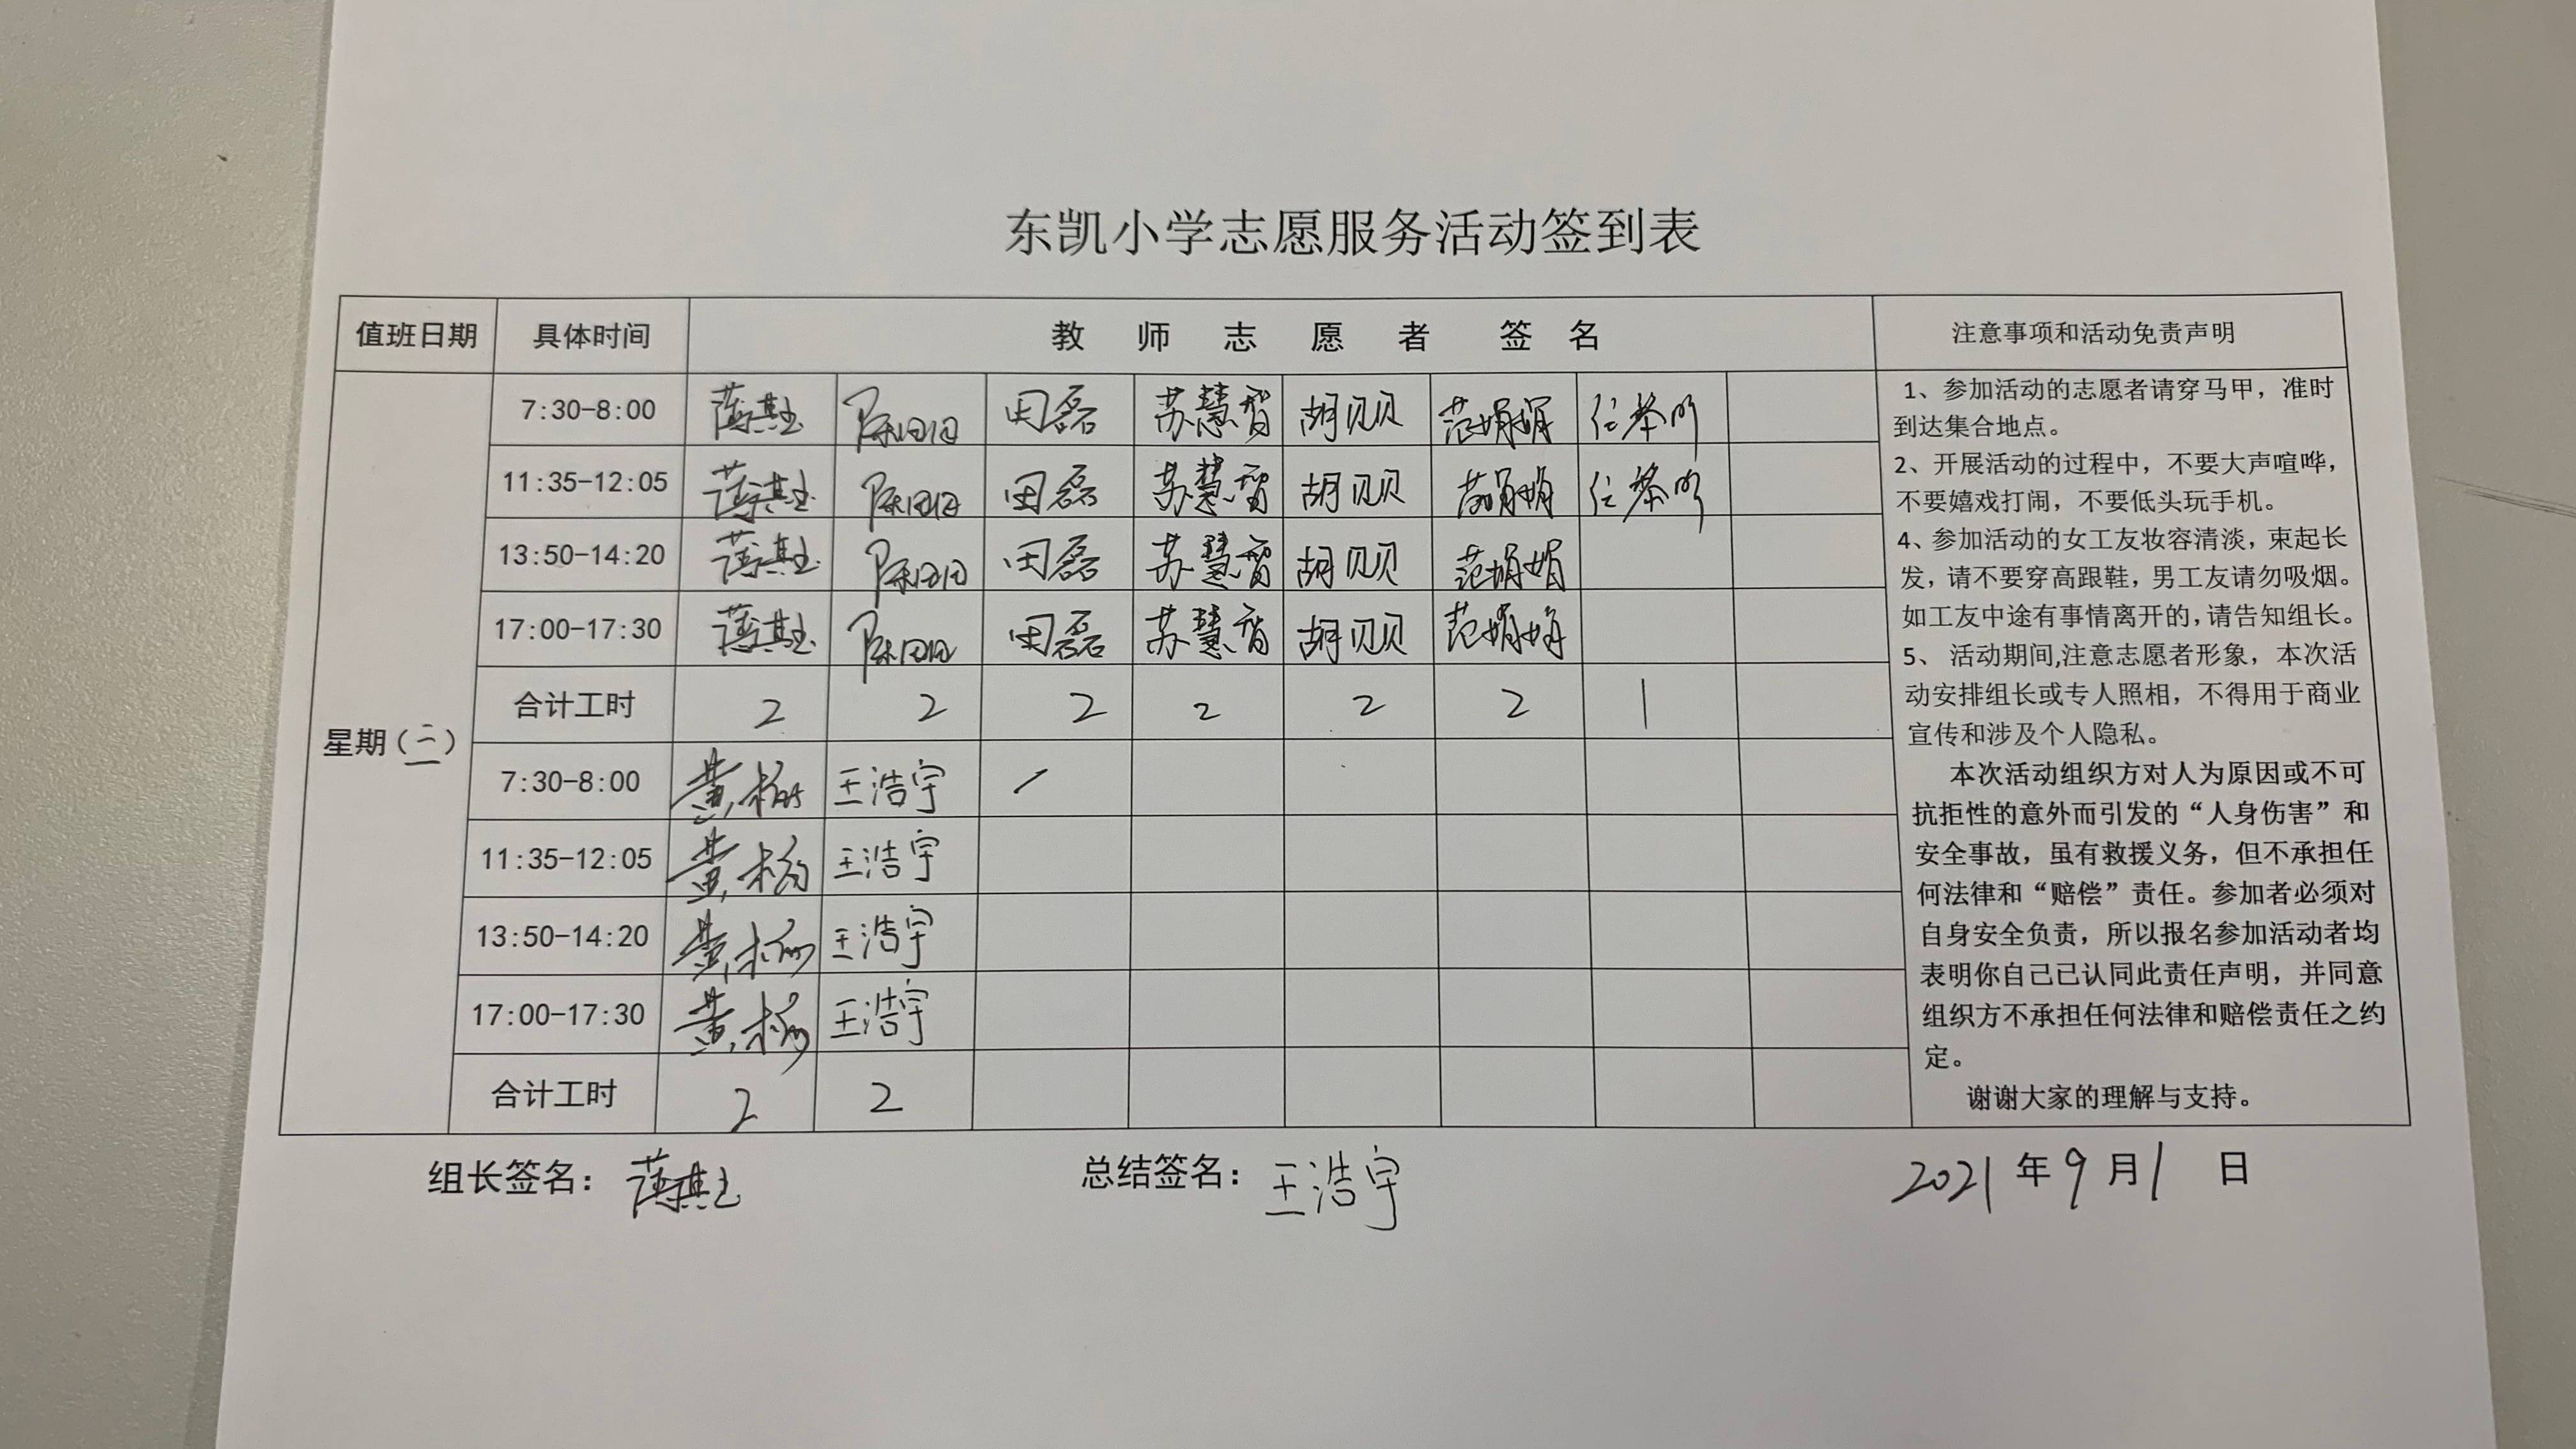 东凯小学志愿服务活动签到表
值班日期 具体时间 教 师 志 愿 者 签 名 注意事项和活动免责声明
7:30-8:00 田磊 苏慧智 胡贝贝 范娟娟
11:35-12:05 田磊 苏慧智 胡贝贝 范娟娟
13:50-14:20 田磊 苏慧智 胡贝贝 范娟娟
17:00-17:30 田磊 苏慧智 胡贝贝 范娟娟
合计工时 2 2 2 2 2 2 1
星期(三)
7:30-8:00 黄杨 王浩宇
11:35-12:05 黄杨 王浩宇
13:50-14:20 黄杨 王浩宇
17:00-17:30 黄杨 王浩宇
合计工时 2 2
1、参加活动的志愿者请穿马甲，准时
到达集合地点。
2、开展活动的过程中，不要大声喧哗，
不要嬉戏打闹，不要低头玩手机。
4、参加活动的女工友妆容清淡，束起长
发，请不要穿高跟鞋，男工友请勿吸烟。
如工友中途有事情离开的,请告知组长。
5、 活动期间,注意志愿者形象，本次活
动安排组长或专人照相，不得用于商业
宣传和涉及个人隐私。
本次活动组织方对人为原因或不可
抗拒性的意外而引发的“人身伤害”和
安全事故，虽有救援义务，但不承担任
何法律和“赔偿”责任。参加者必须对
自身安全负责，所以报名参加活动者均
表明你自己已认同此责任声明，并同意
组织方不承担任何法律和赔偿责任之约
定。
谢谢大家的理解与支持。
组长签名： 总结签名：王浩宇 2021年9月1日